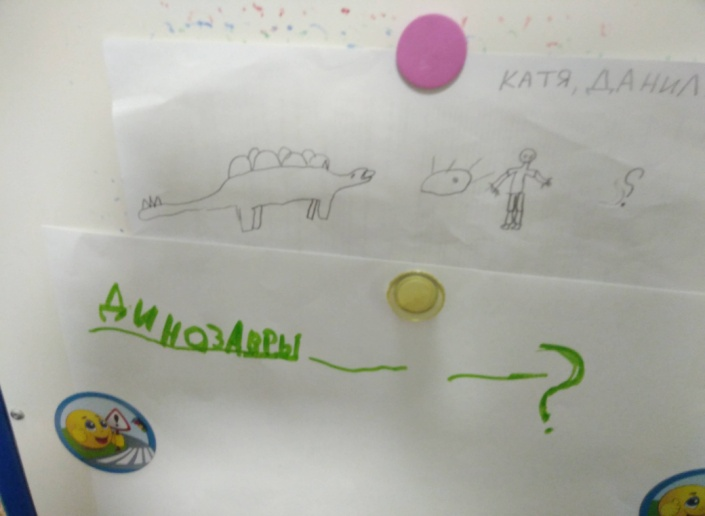 КАТЯ, ДАНИЛ
?
ДИНОЗАВРЫ ___ ___?